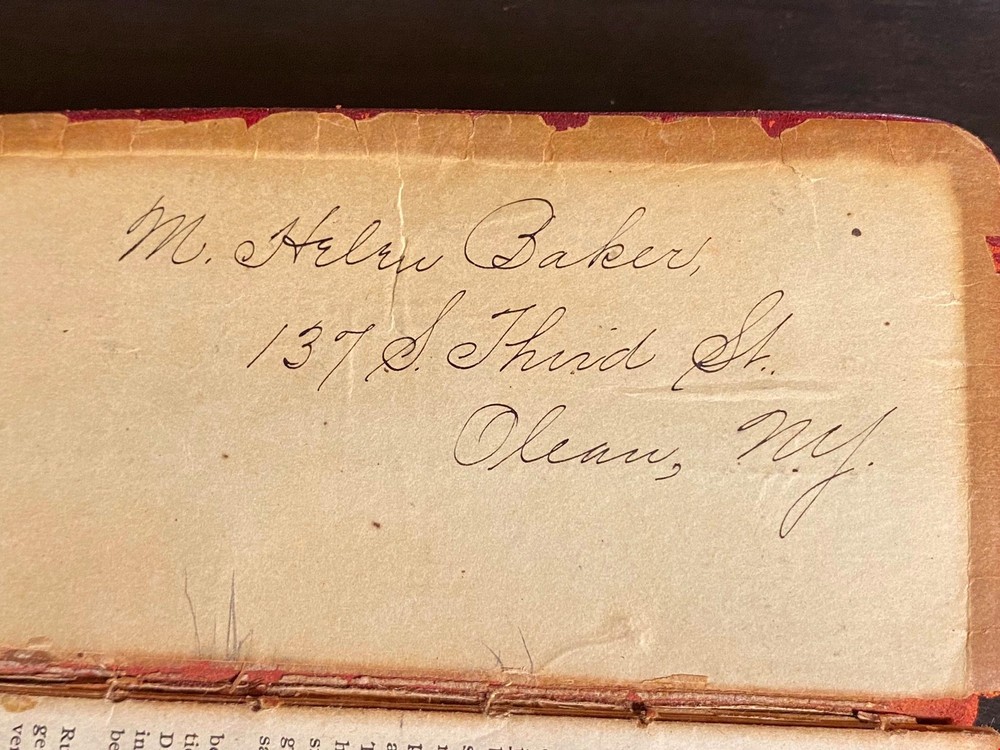 M. Helen Baker,
137 S. Third St.
Olean, N.Y.